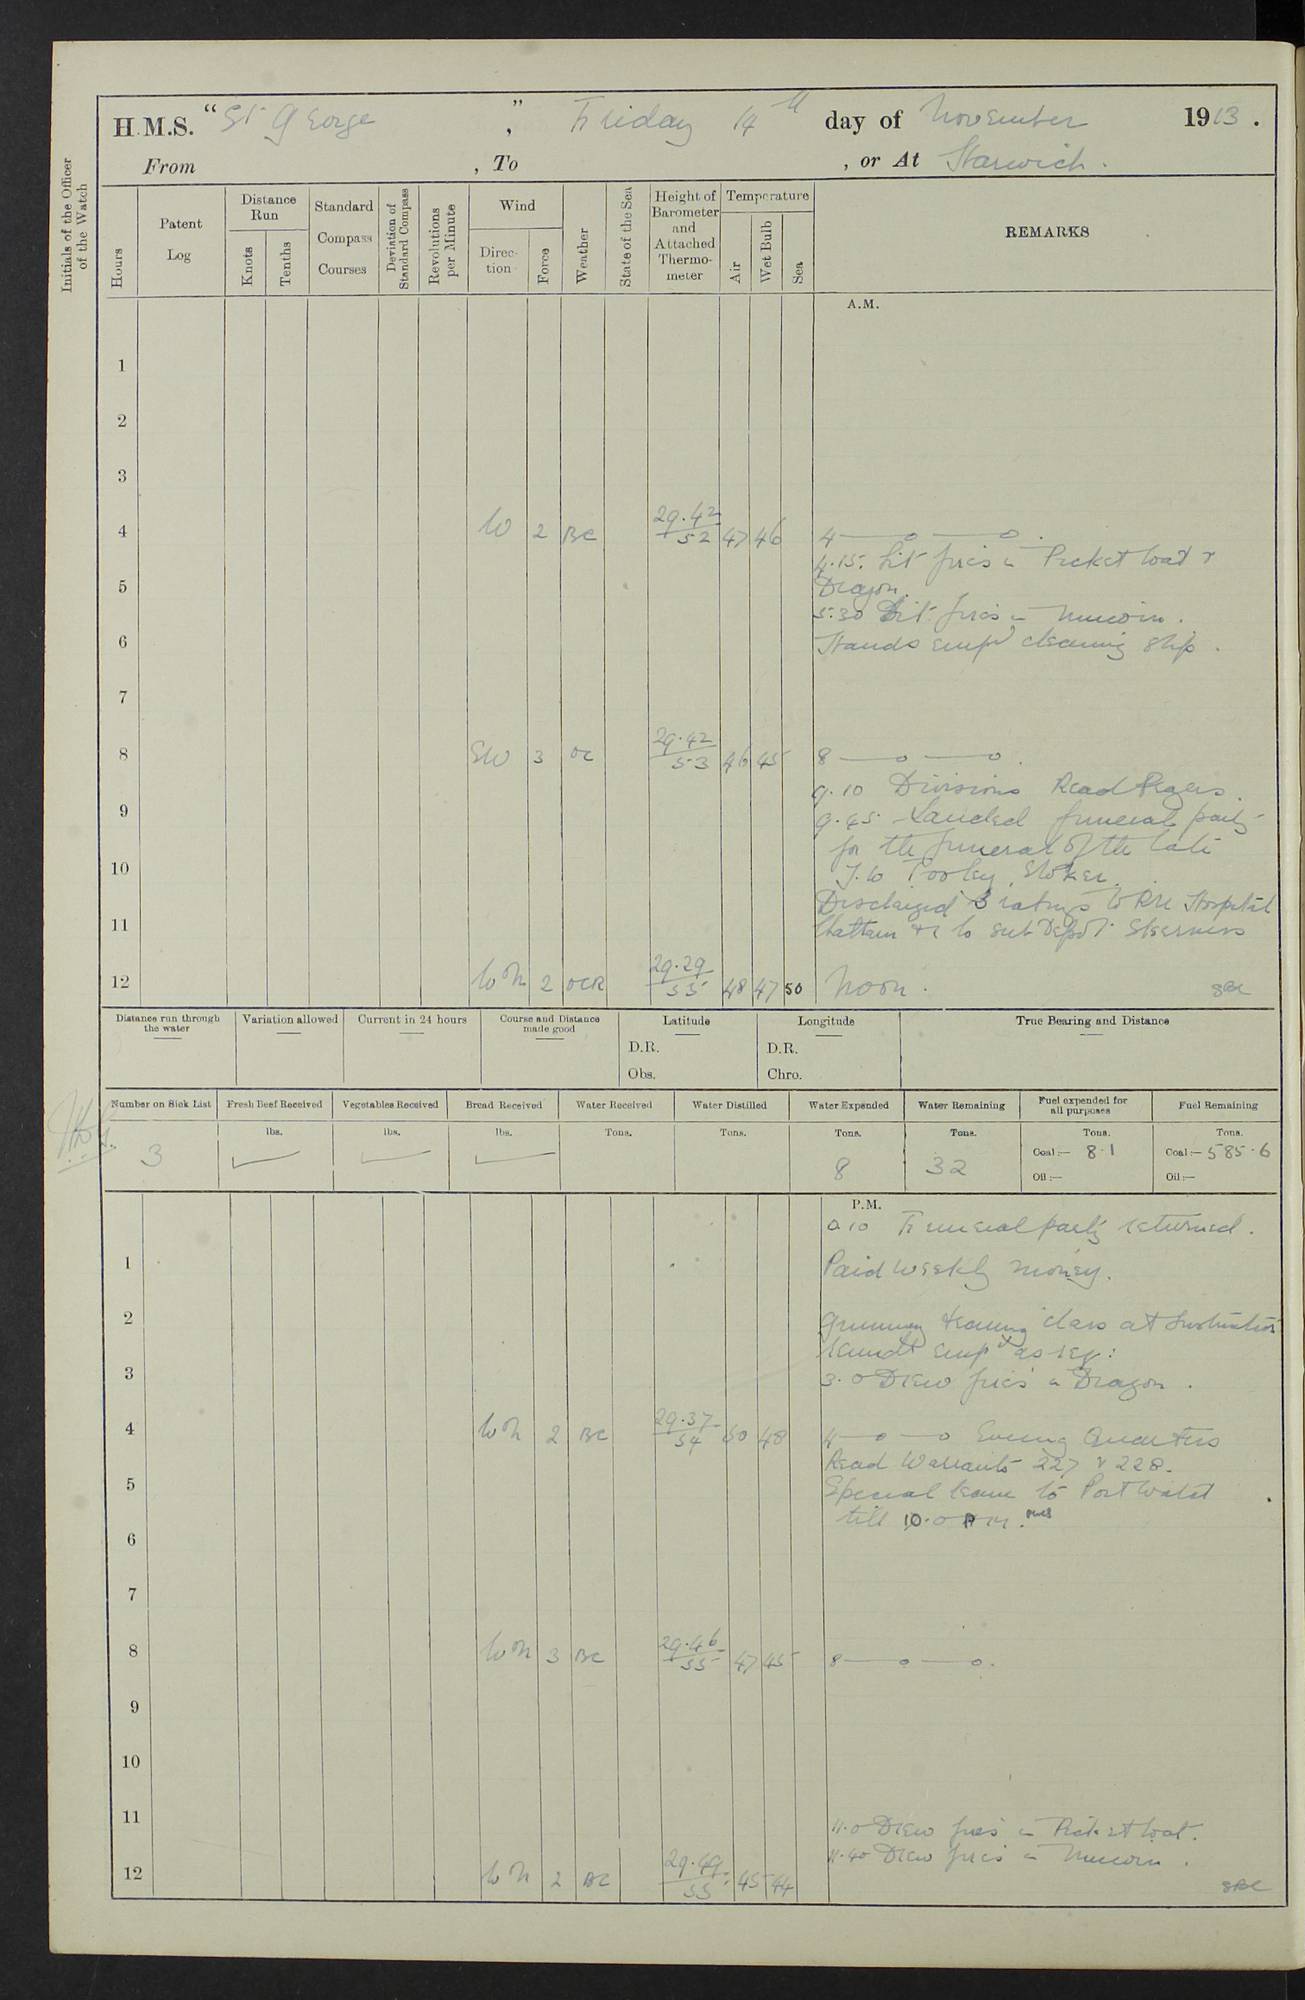 H.M.S. "St George", Friday 14th day of November 1913.
From , To , or At Harwich.
Initials of the Officer of the Watch
Hours
Patent Log
Distance Run
Knots
Tenths
Standard Compass Courses
Deviation of Standard Compass
Revolutions per Minute
Wind
Direction
Force
Weather
State of the Sea
Height of Barometer and Attached Thermometer
Temperature
Air
Wet Bulb
Sea
REMARKS
A.M.
1
2
3
4 W 2 BC 29.42/52 47 46 4 —o—o.
4.15. Lit fires in Picket boat &
5 Dragon.
5.30 Lit fires in
6 Hands empd cleaning ship.
7
8 SW 3 OC 29.42/53 46 45 8 —o—o.
9.10 Divisions Read Prayers.
9 9.45. Landed funeral party
for the funeral of the late
10 Tooley, Stoker.
Discharged 3 ratings to RN Hospital
11 Chatham & 1 to sub Depot Sheerness
12 WN 2 OCR 29.29/55 48 47 50 Noon.
Distance run through the water
Variation allowed
Current in 24 hours
Course and Distance made good
Latitude
D.R.
Obs.
Longitude
D.R.
Chro.
True Bearing and Distance
Number on Sick List
Fresh Beef Received
Vegetables Received
Bread Received
Water Received
Water Distilled
Water Expended
Water Remaining
Fuel expended for all purposes
Fuel Remaining
lbs. lbs. lbs. Tons. Tons. Tons. Tons. Tons. Tons.
3 8 32 Coal:— 8.1 Coal:— 585.6
Oil:— Oil:—
P.M.
0.10 Funeral party returned.
1 Paid weekly money.
2 Gunnery training class at Instruction
remdr empd as req:
3 3.0 Drew fires in Dragon.
4 WN 2 BC 29.37/54 50 48 4 —o—o Evening Quarters
Read Warrants 227 & 228.
5 Special leave to Port Watch
till 10.0 PM.
6
7
8 WN 3 BC 29.46/55 47 45 8 —o—o.
9
10
11 11.0 Drew fires in Picket boat.
11.40 Drew fires in
12 WN 2 BC 29.49/55 45 44